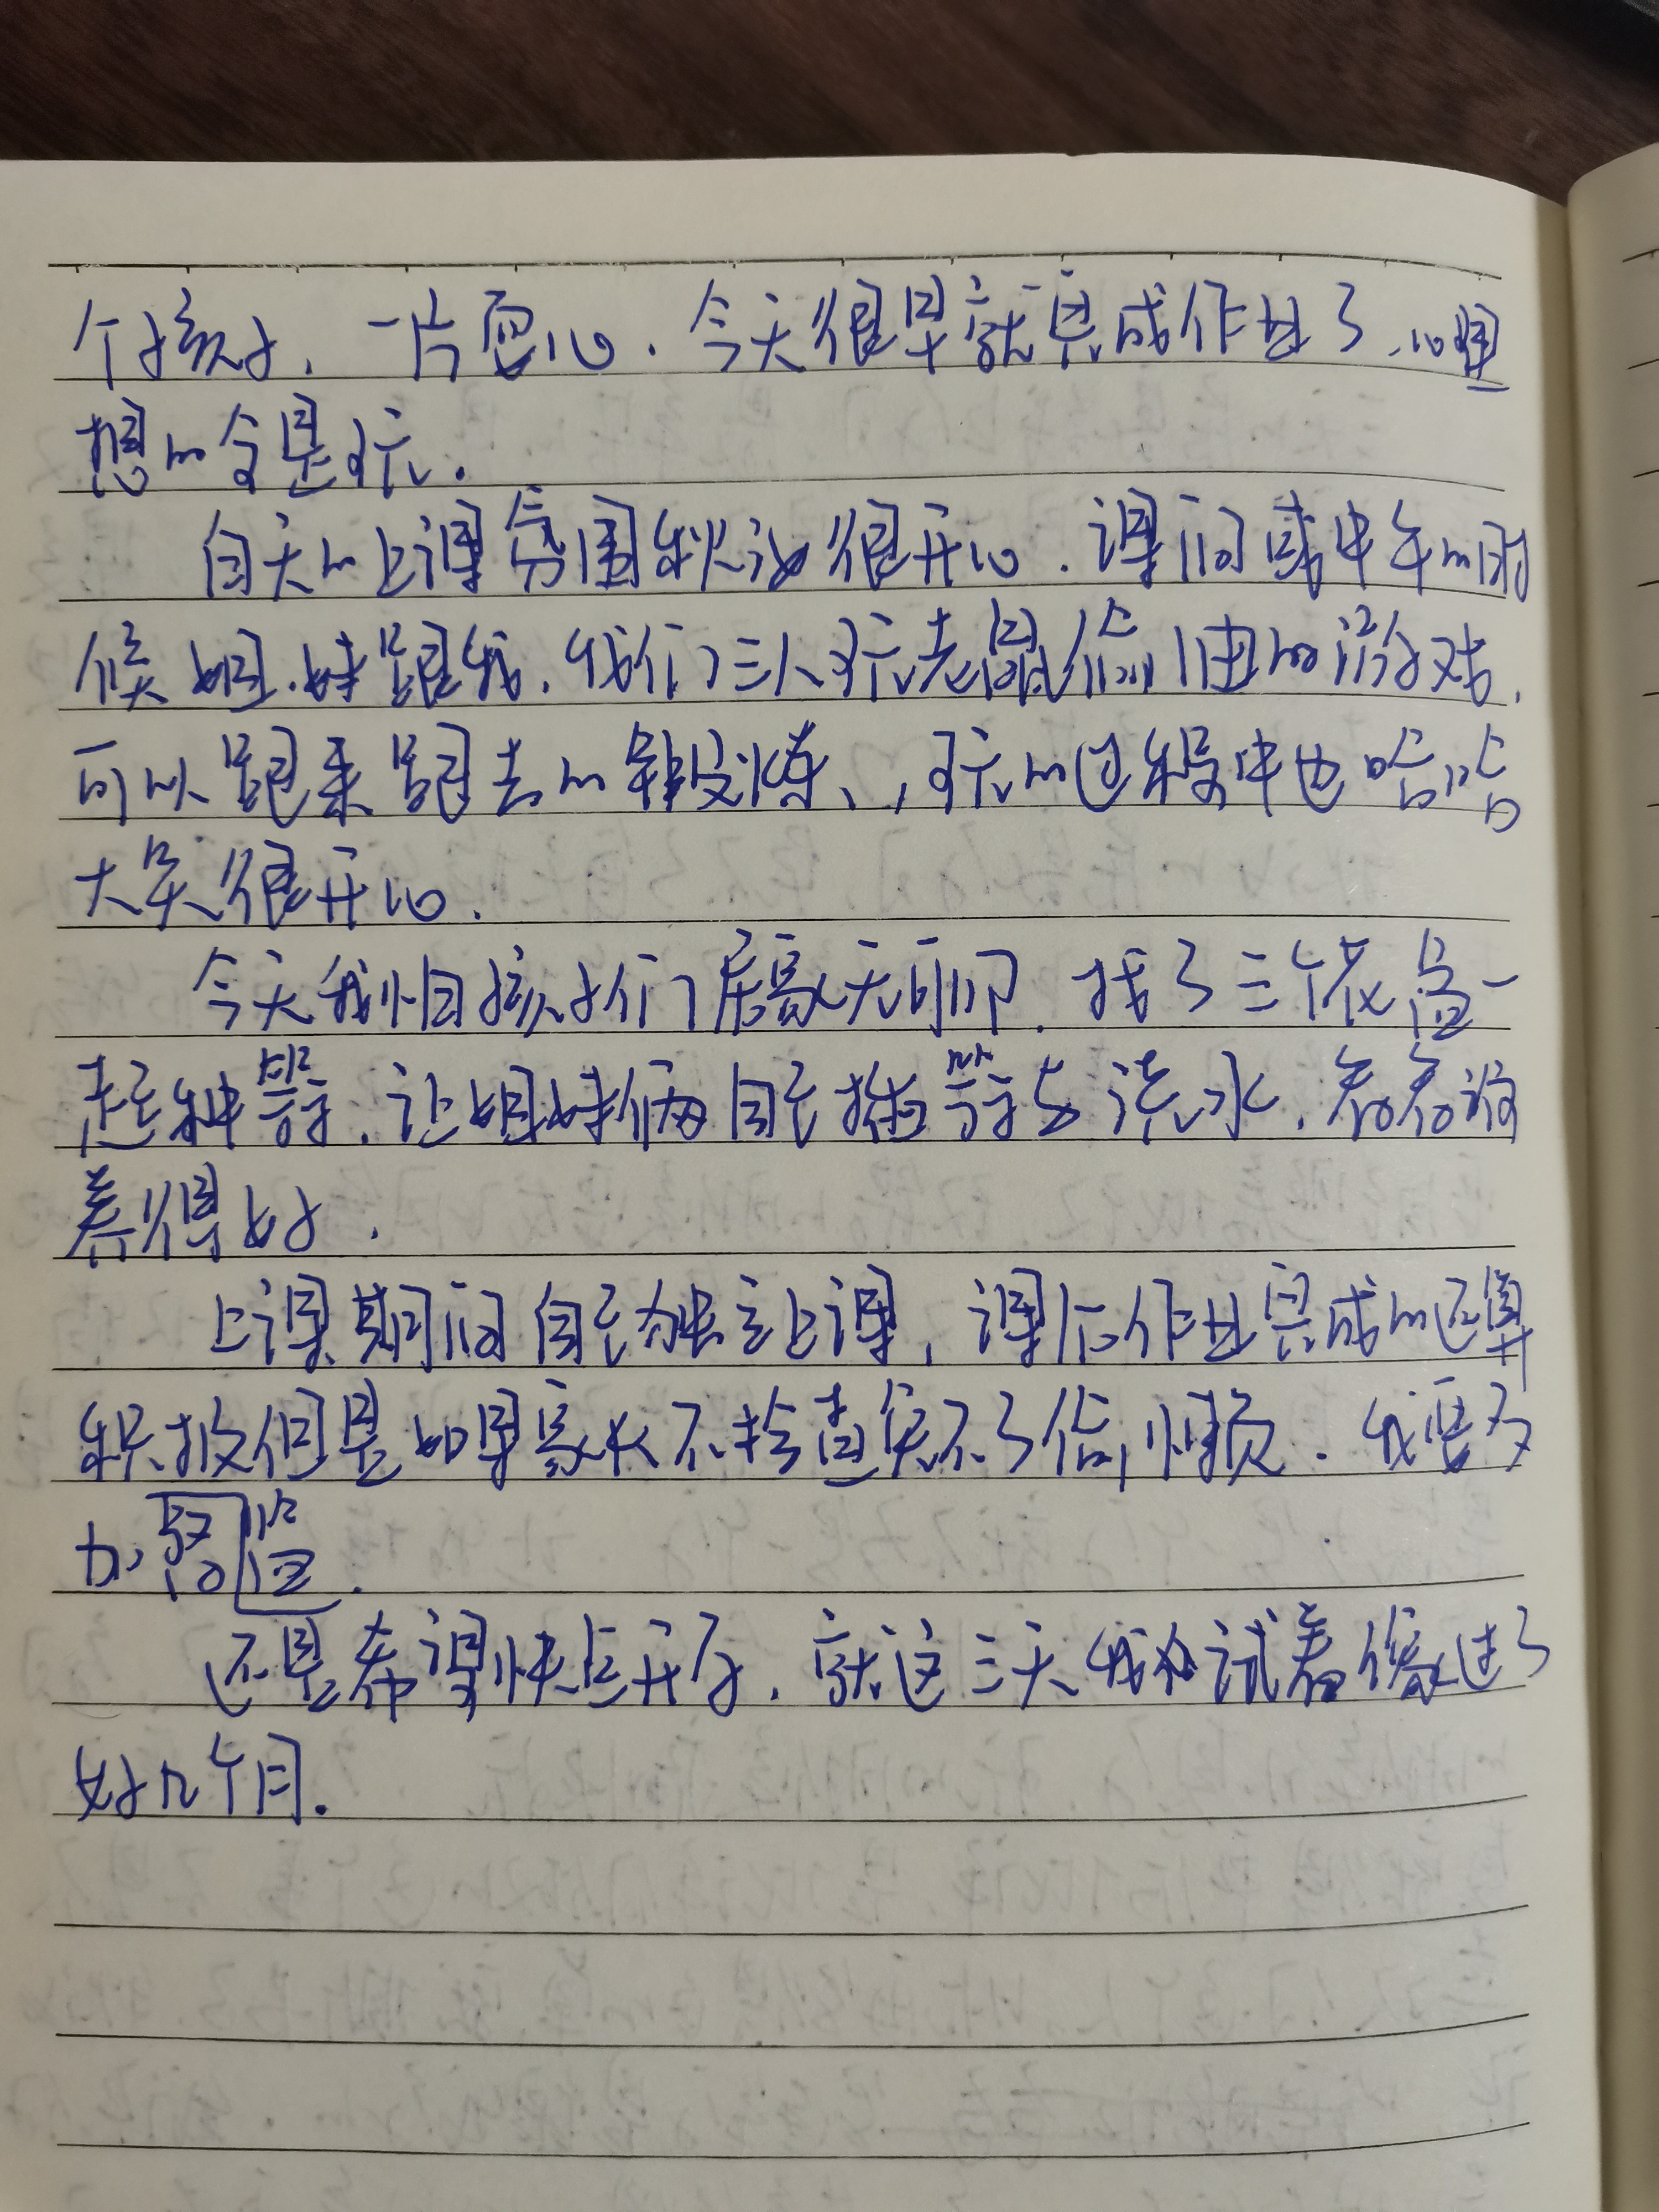 个孩子，一片忍心．今天很早就完成作业了．心里
想的全是玩．
白天的上课氛围状况很开心．课间或中午的时
候姐．妹跟我．我们三人玩老鼠偷油的游戏．
可以跑来跑去的锻炼、，玩的过程中也哈哈
大笑很开心．
今天我怕孩子们居家无聊．找了三个花盆一
起种蒜．让姐妹俩自己掰蒜与浇水．看看谁
养得好．
上课期间自己独立上课，课后作业完成的还算
积极但是如果家长不检查免不了偷懒．我要多
加督监．
还是希望快点开学．就这三天我试着像过了
好几个月．